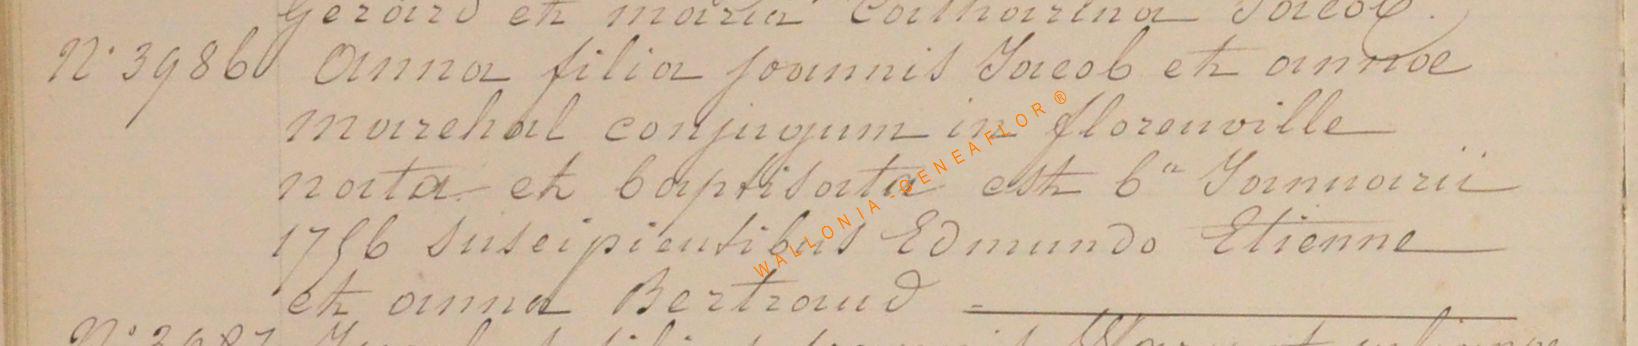 Gerard et maria Catharina Jacob.
N° 3986 Anna filia Joannis Jacob et annae
marchal conjugum in florenville
nata et baptisata est 6a Januarii
1756 suscipientibus Edmundo Etienne
et anna Bertrand =
N° 3987
WALLONIA - GENEAFLOR ®